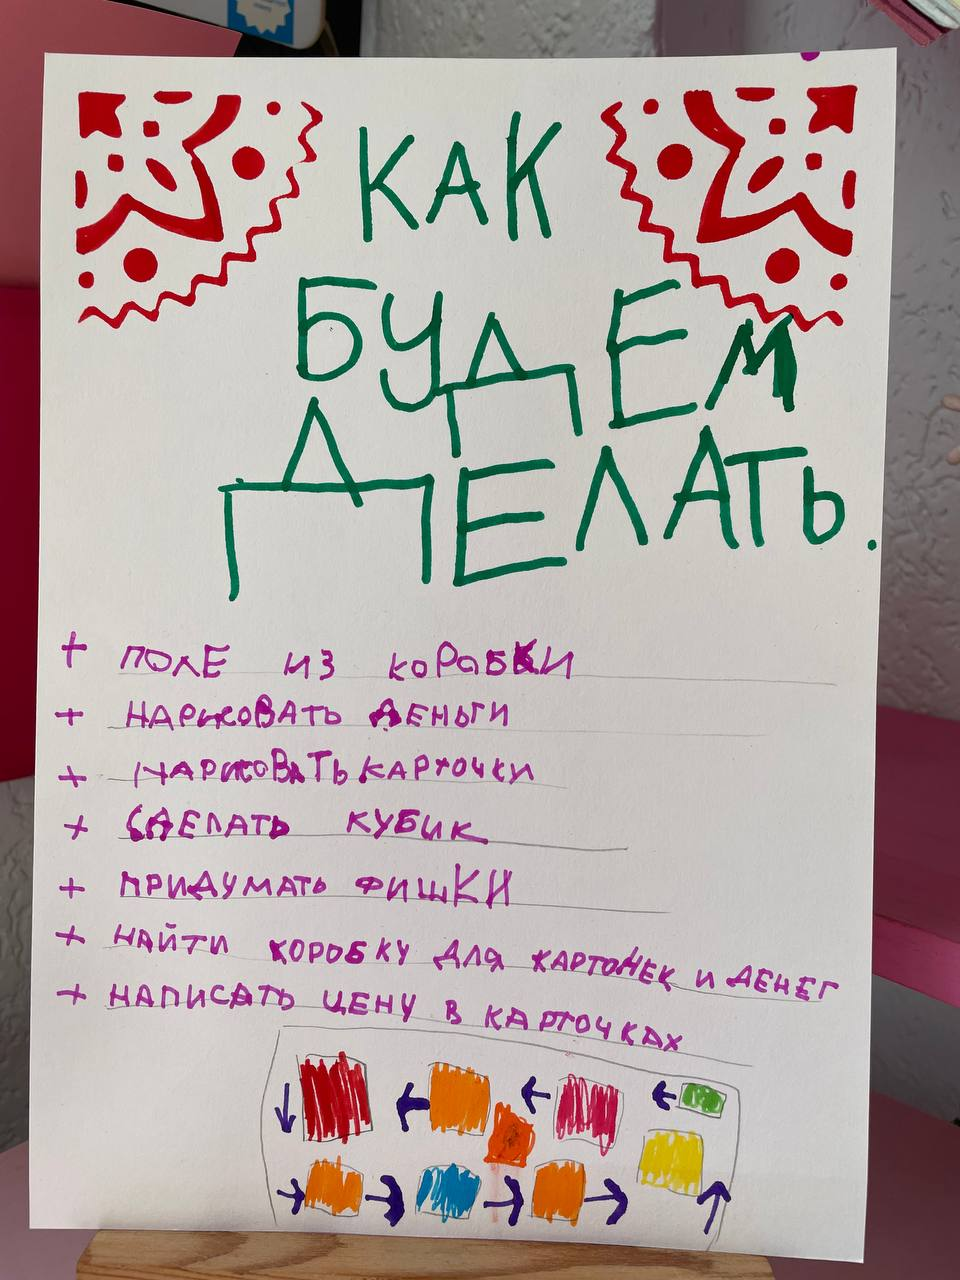 КАК
БУДЕМ
ДЕЛАТЬ.
+ ПОЛЕ ИЗ КОРАБКИ
+ НАРИСОВАТЬ ДЕНЬГИ
+ НАРИСОВАТЬ КАРТОЧКИ
+ СДЕЛАТЬ КУБИК
+ ПРИДУМАТЬ ФИШКИ
+ НАЙТИ КОРОБКУ ДЛЯ КАРТОЧЕК И ДЕНЕГ
+ НАПИСАТЬ ЦЕНУ В КАРТОЧКАХ